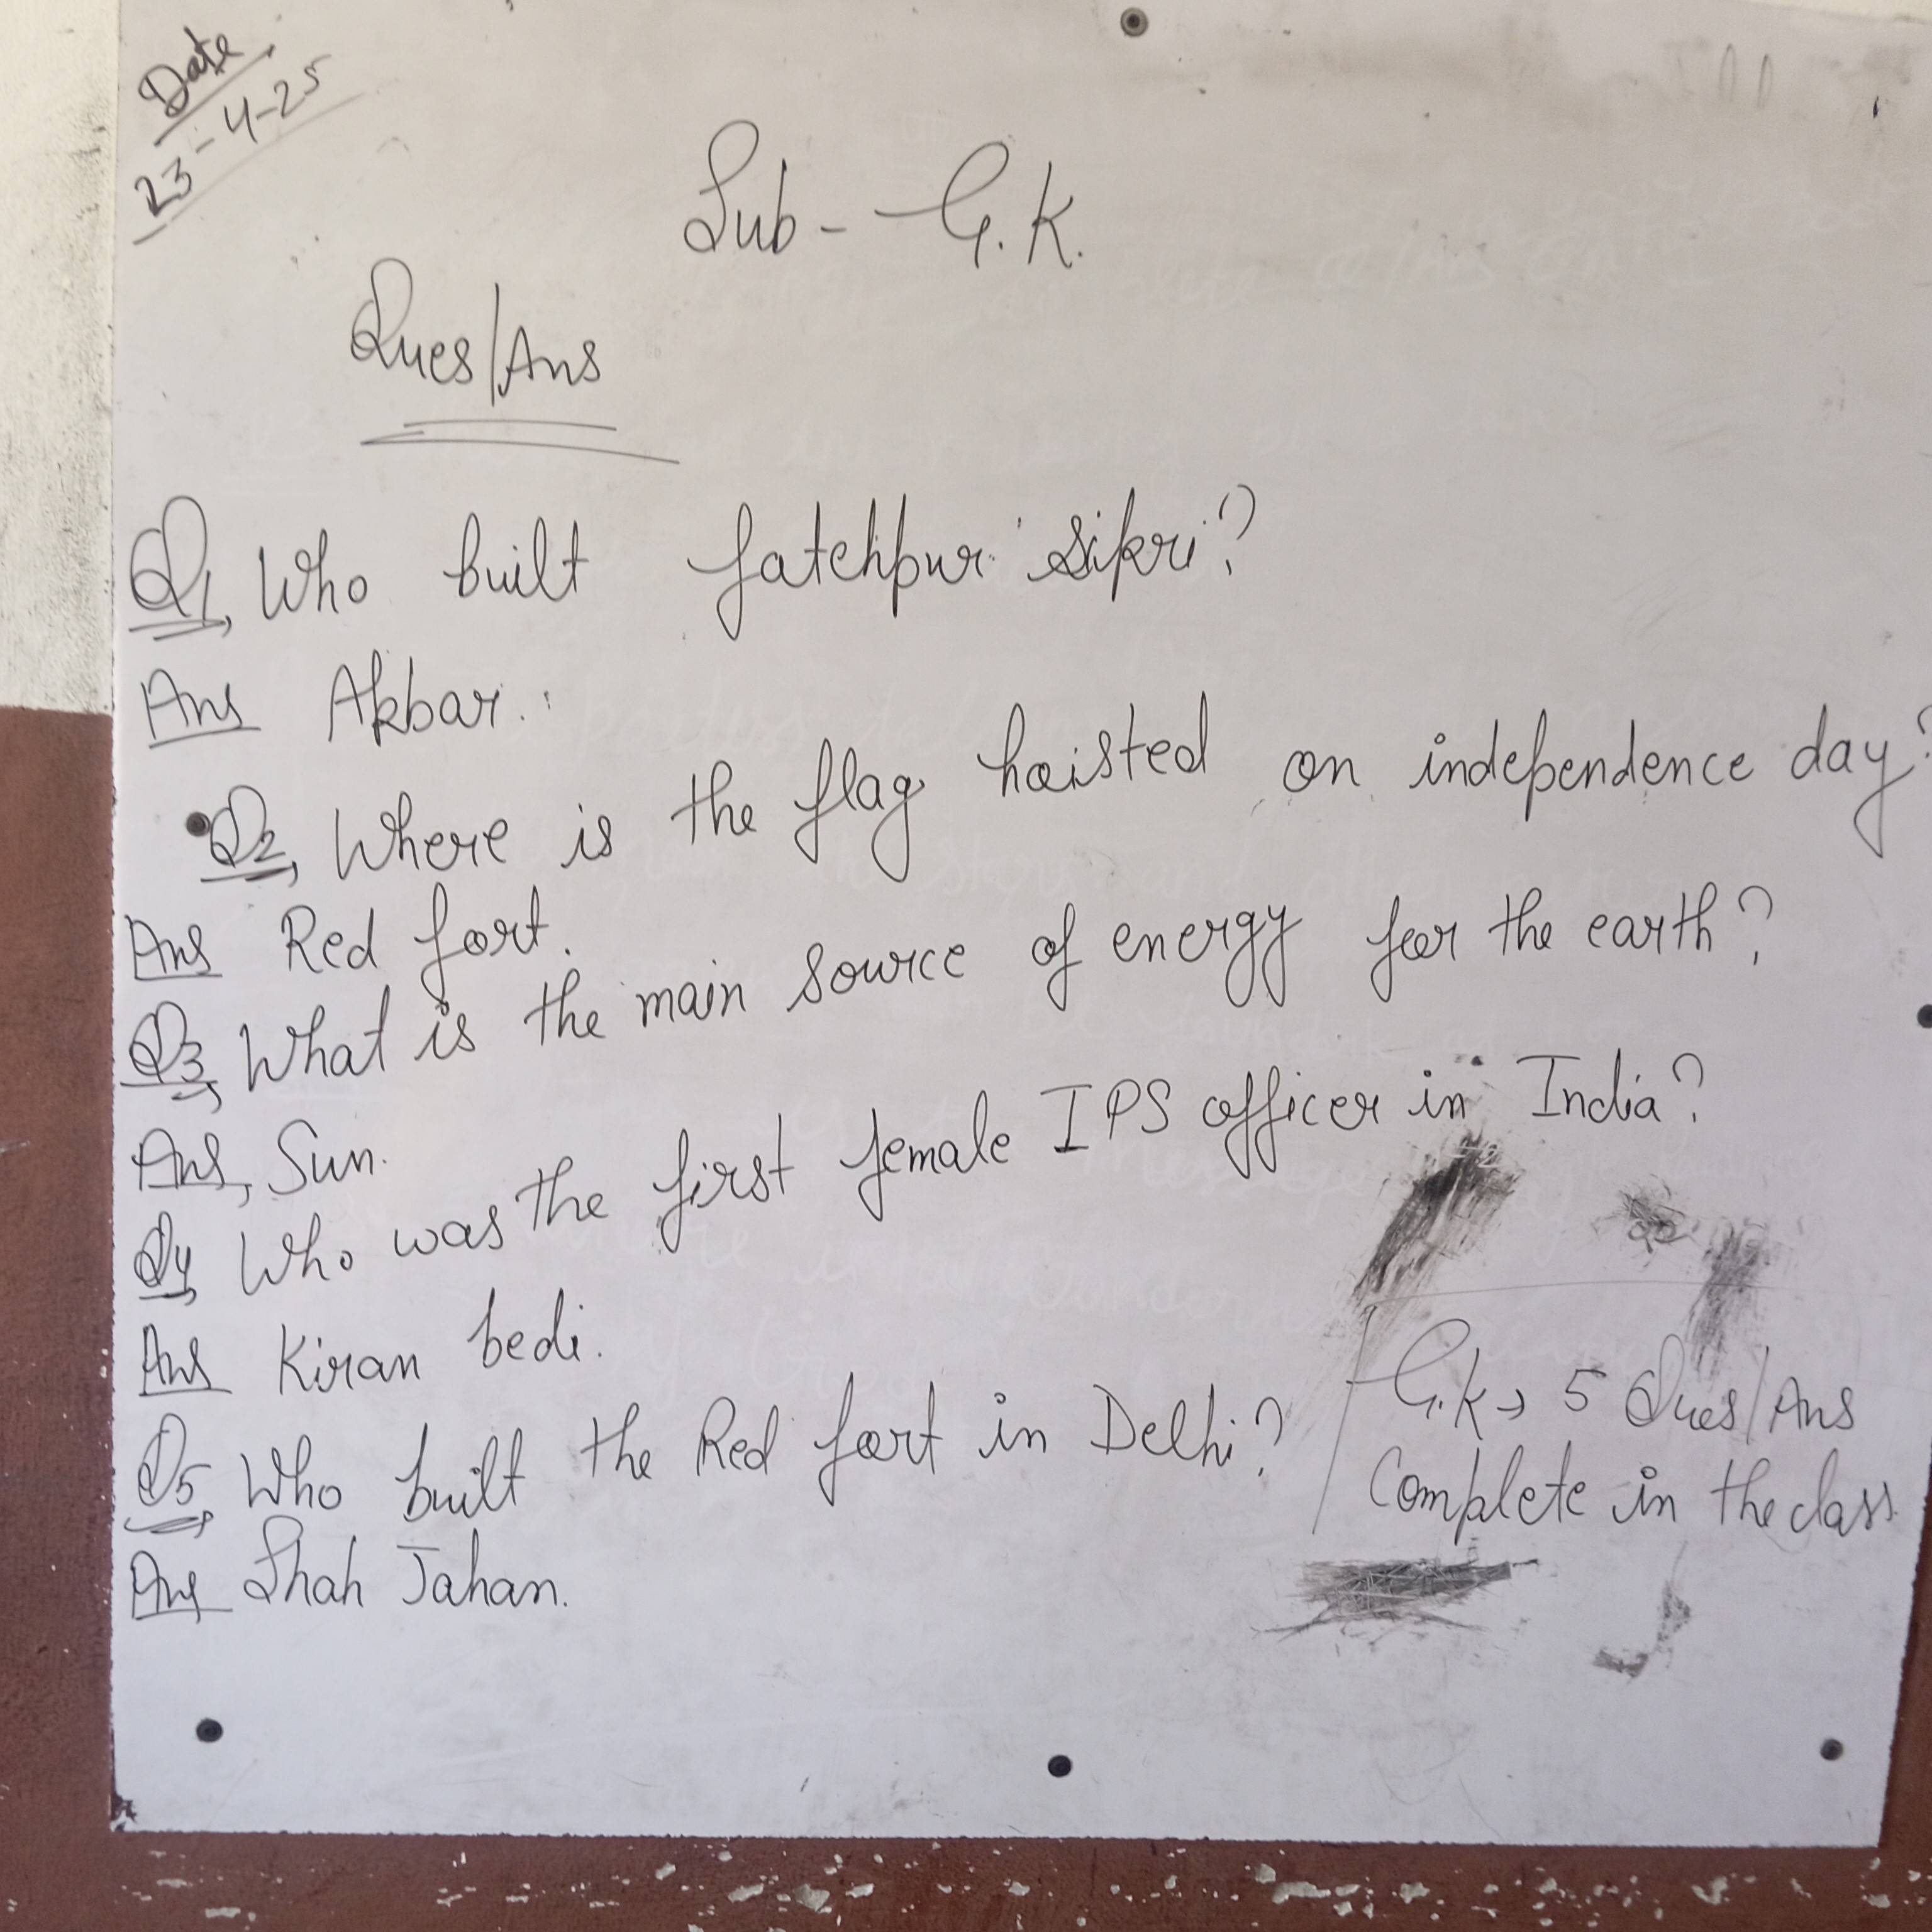 Date
23-4-25
Sub - G.K.
Ques/Ans
Q1, Who built fatehpur sikri?
Ans Akbar.
Q2, Where is the flag hoisted on independence day?
Ans Red fort.
Q3, What is the main source of energy for the earth?
Ans, Sun.
Q4, Who was the first female IPS officer in India?
Ans Kiran bedi.
Q5, Who built the Red fort in Delhi?
Ans Shah Jahan.
G.K → 5 Ques/Ans
Complete in the class.